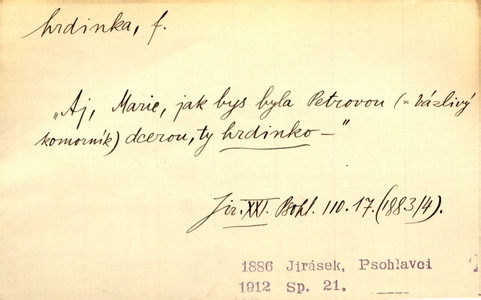 hrdinka, f.
„Aj, Marie, jak bys byla Petrovou (= vázlivý
komorník) dcerou, ty hrdinko —"
Jir. XXI. Bohl. 110. 17. (1883/4).
1886 Jirásek, Psohlavci
1912 Sp. 21.